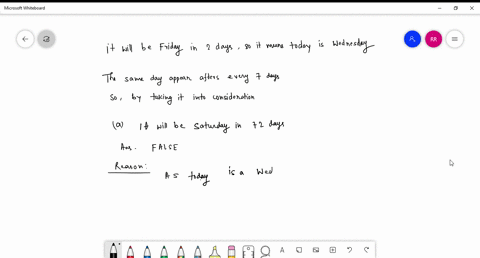 Microsoft Whiteboard
RR
it will be Friday in 2 days, so it means today is Wednesday
The same day appear afters every 7 days
So, by taking it into consideration
(a) It will be Saturday in 72 days
Ans. FALSE
Reason:
As today is a Wed